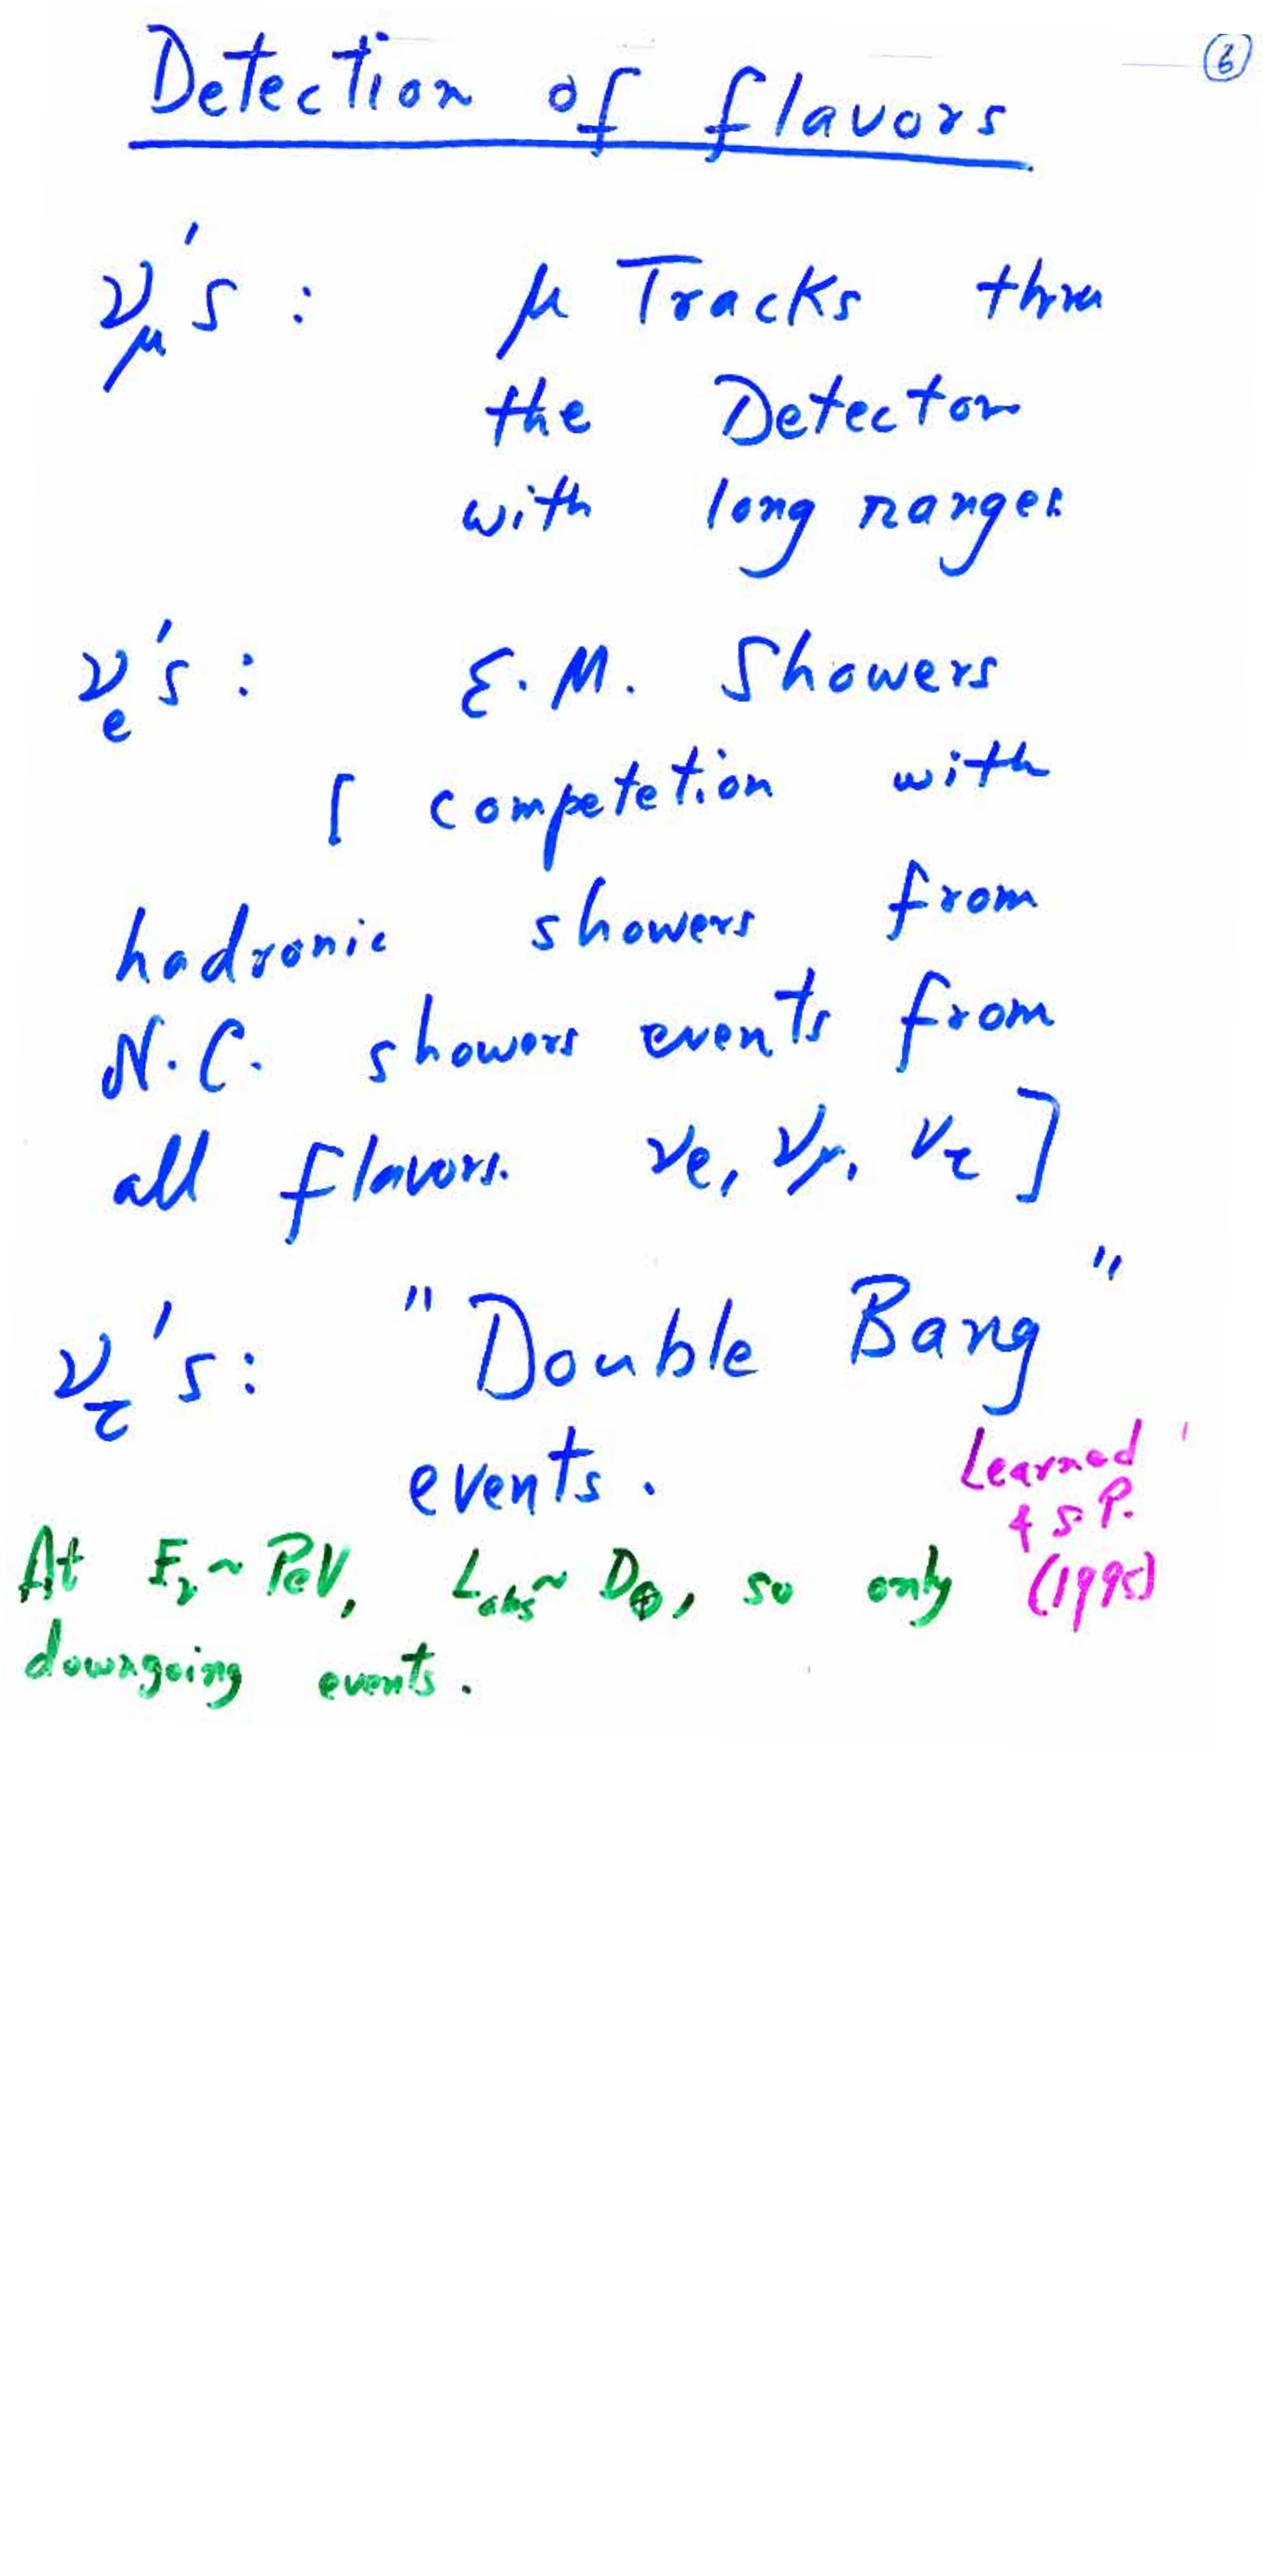 6
Detection of flavors
ν_μ's : μ Tracks thru
the Detector
with long ranges
ν_e's : E.M. Showers
[ competetion with
hadronic showers from
N.C. showers events from
all flavors. νe, νμ, ντ ]
ν_τ's: "Double Bang"
events.
Learned
& S.P.
(1995)
At Eν ~ PeV, Labs ~ D⊕, so only
downgoing events.